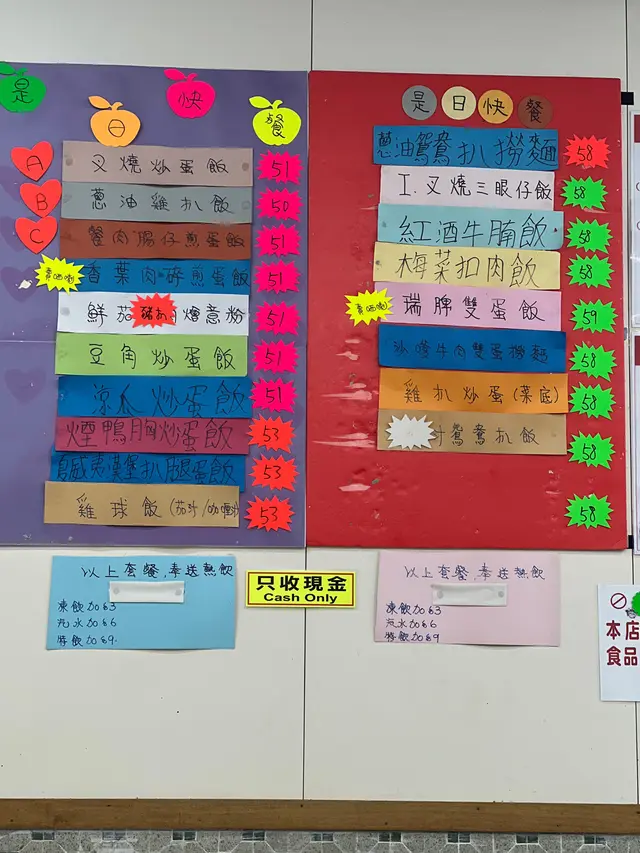 是日快餐
A 叉燒炒蛋飯 51
B 蔥油雞扒飯 50
C 蟹肉腸仔煎蛋飯 51
香葉肉碎煎蛋飯 51
鮮茄豬扒燴意粉 51
豆角炒蛋飯 51
涼瓜炒蛋飯 51
煙鴨胸炒蛋飯 53
夏威夷漢堡扒腿蛋飯 53
雞球飯(茄汁/咖喱) 53
以上套餐,奉送熱飲
凍飲加$3
汽水加$6
特飲加$9
只收現金
Cash Only
是日快餐
蔥油鴛鴦扒撈麵 58
I.叉燒三眼仔飯 58
紅酒牛腩飯 58
梅菜扣肉飯 58
瑞脾雙蛋飯 59
沙嗲牛肉雙蛋撈麵 58
雞扒炒蛋(菜底) 58
汁鴛鴦扒飯 58
58
以上套餐,奉送熱飲
凍飲加$3
汽水加$6
特飲加$9
本店
食品